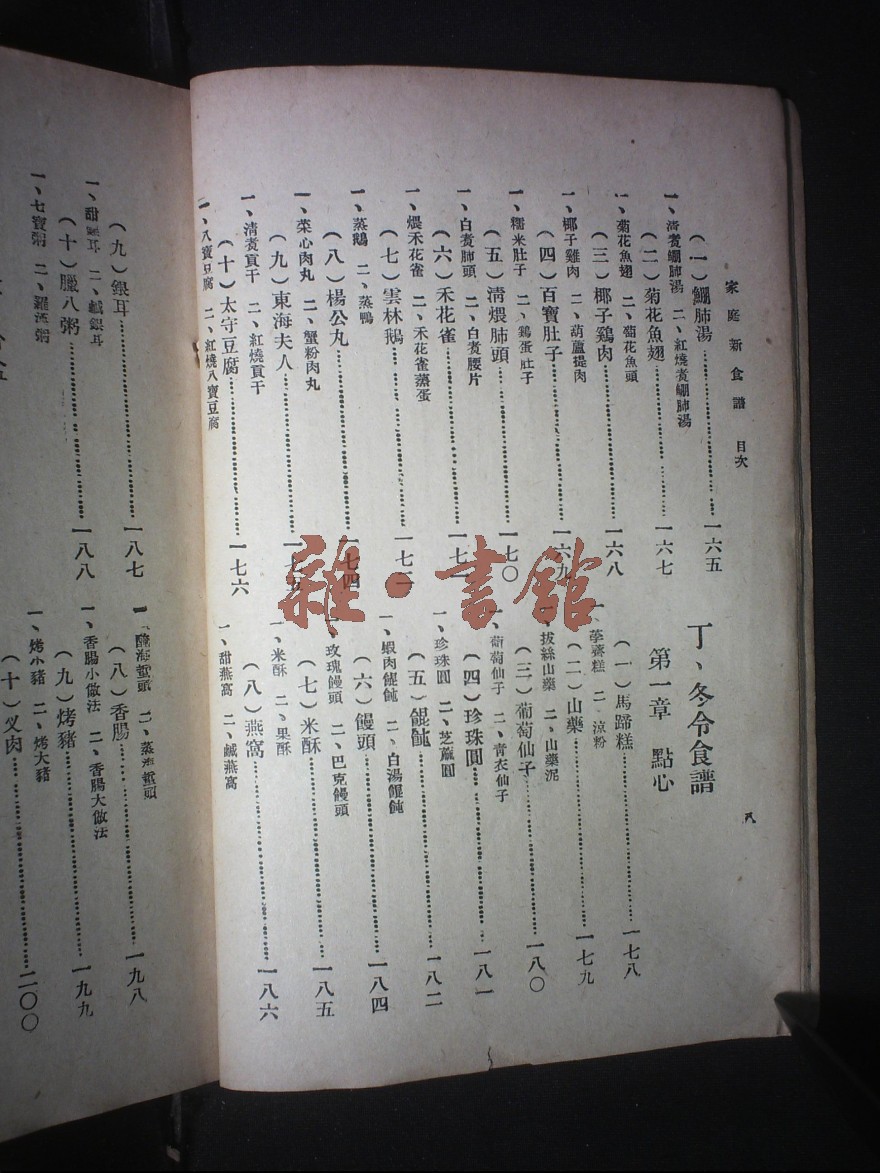 家庭新食譜 目次
(一)鮰肺湯……一六五
一、清煑鮰肺湯 二、紅燒煑鮰肺湯
(二)菊花魚翅……一六七
一、菊花魚翅 二、菊花魚頭
(三)椰子鷄肉……一六八
一、椰子雞肉 二、葫蘆提肉
(四)百寶肚子……一六九
一、糯米肚子 二、鷄蛋肚子
(五)淸煨肺頭……一七〇
一、白煑肺頭 二、白煑腰片
(六)禾花雀……一七
一、煨禾花雀 二、禾花雀蒸蛋
(七)雲林鵝……一七
一、蒸鵝 二、蒸鴨
(八)楊公丸……一七四
一、菜心肉丸 二、蟹粉肉丸
(九)東海夫人……一七五
一、清煑貢干 二、紅燒貢干
(十)太守豆腐……一七六
一、八寶豆腐 二、紅燒八寶豆腐
丁、冬令食譜
第一章 點心
(一)馬蹄糕……一七八
一、荸薺糕 二、涼粉
(二)山藥……一七九
一、拔絲山藥 二、山藥泥
(三)葡萄仙子……一八〇
一、葡萄仙子 二、青衣仙子
(四)珍珠圓……一八一
一、珍珠圓 二、芝蔴圓
(五)餛飩……一八二
一、蝦肉餛飩 二、白湯餛飩
(六)饅頭……一八四
一、玫瑰饅頭 二、巴克饅頭
(七)米酥……一八五
一、米酥 二、果酥
(八)燕窩……一八六
一、甜燕窩 二、鹹燕窩
八
(九)銀耳……一八七
一、甜銀耳 二、鹹銀耳
(十)臘八粥……一八八
一、七寶粥 二、羅漢粥
二、蒸海蜇頭
(八)香腸……一九八
一、香腸小做法 二、香腸大做法
(九)烤豬……一九九
一、烤小豬 二、烤大豬
(十)叉肉……二〇〇
雜·書館